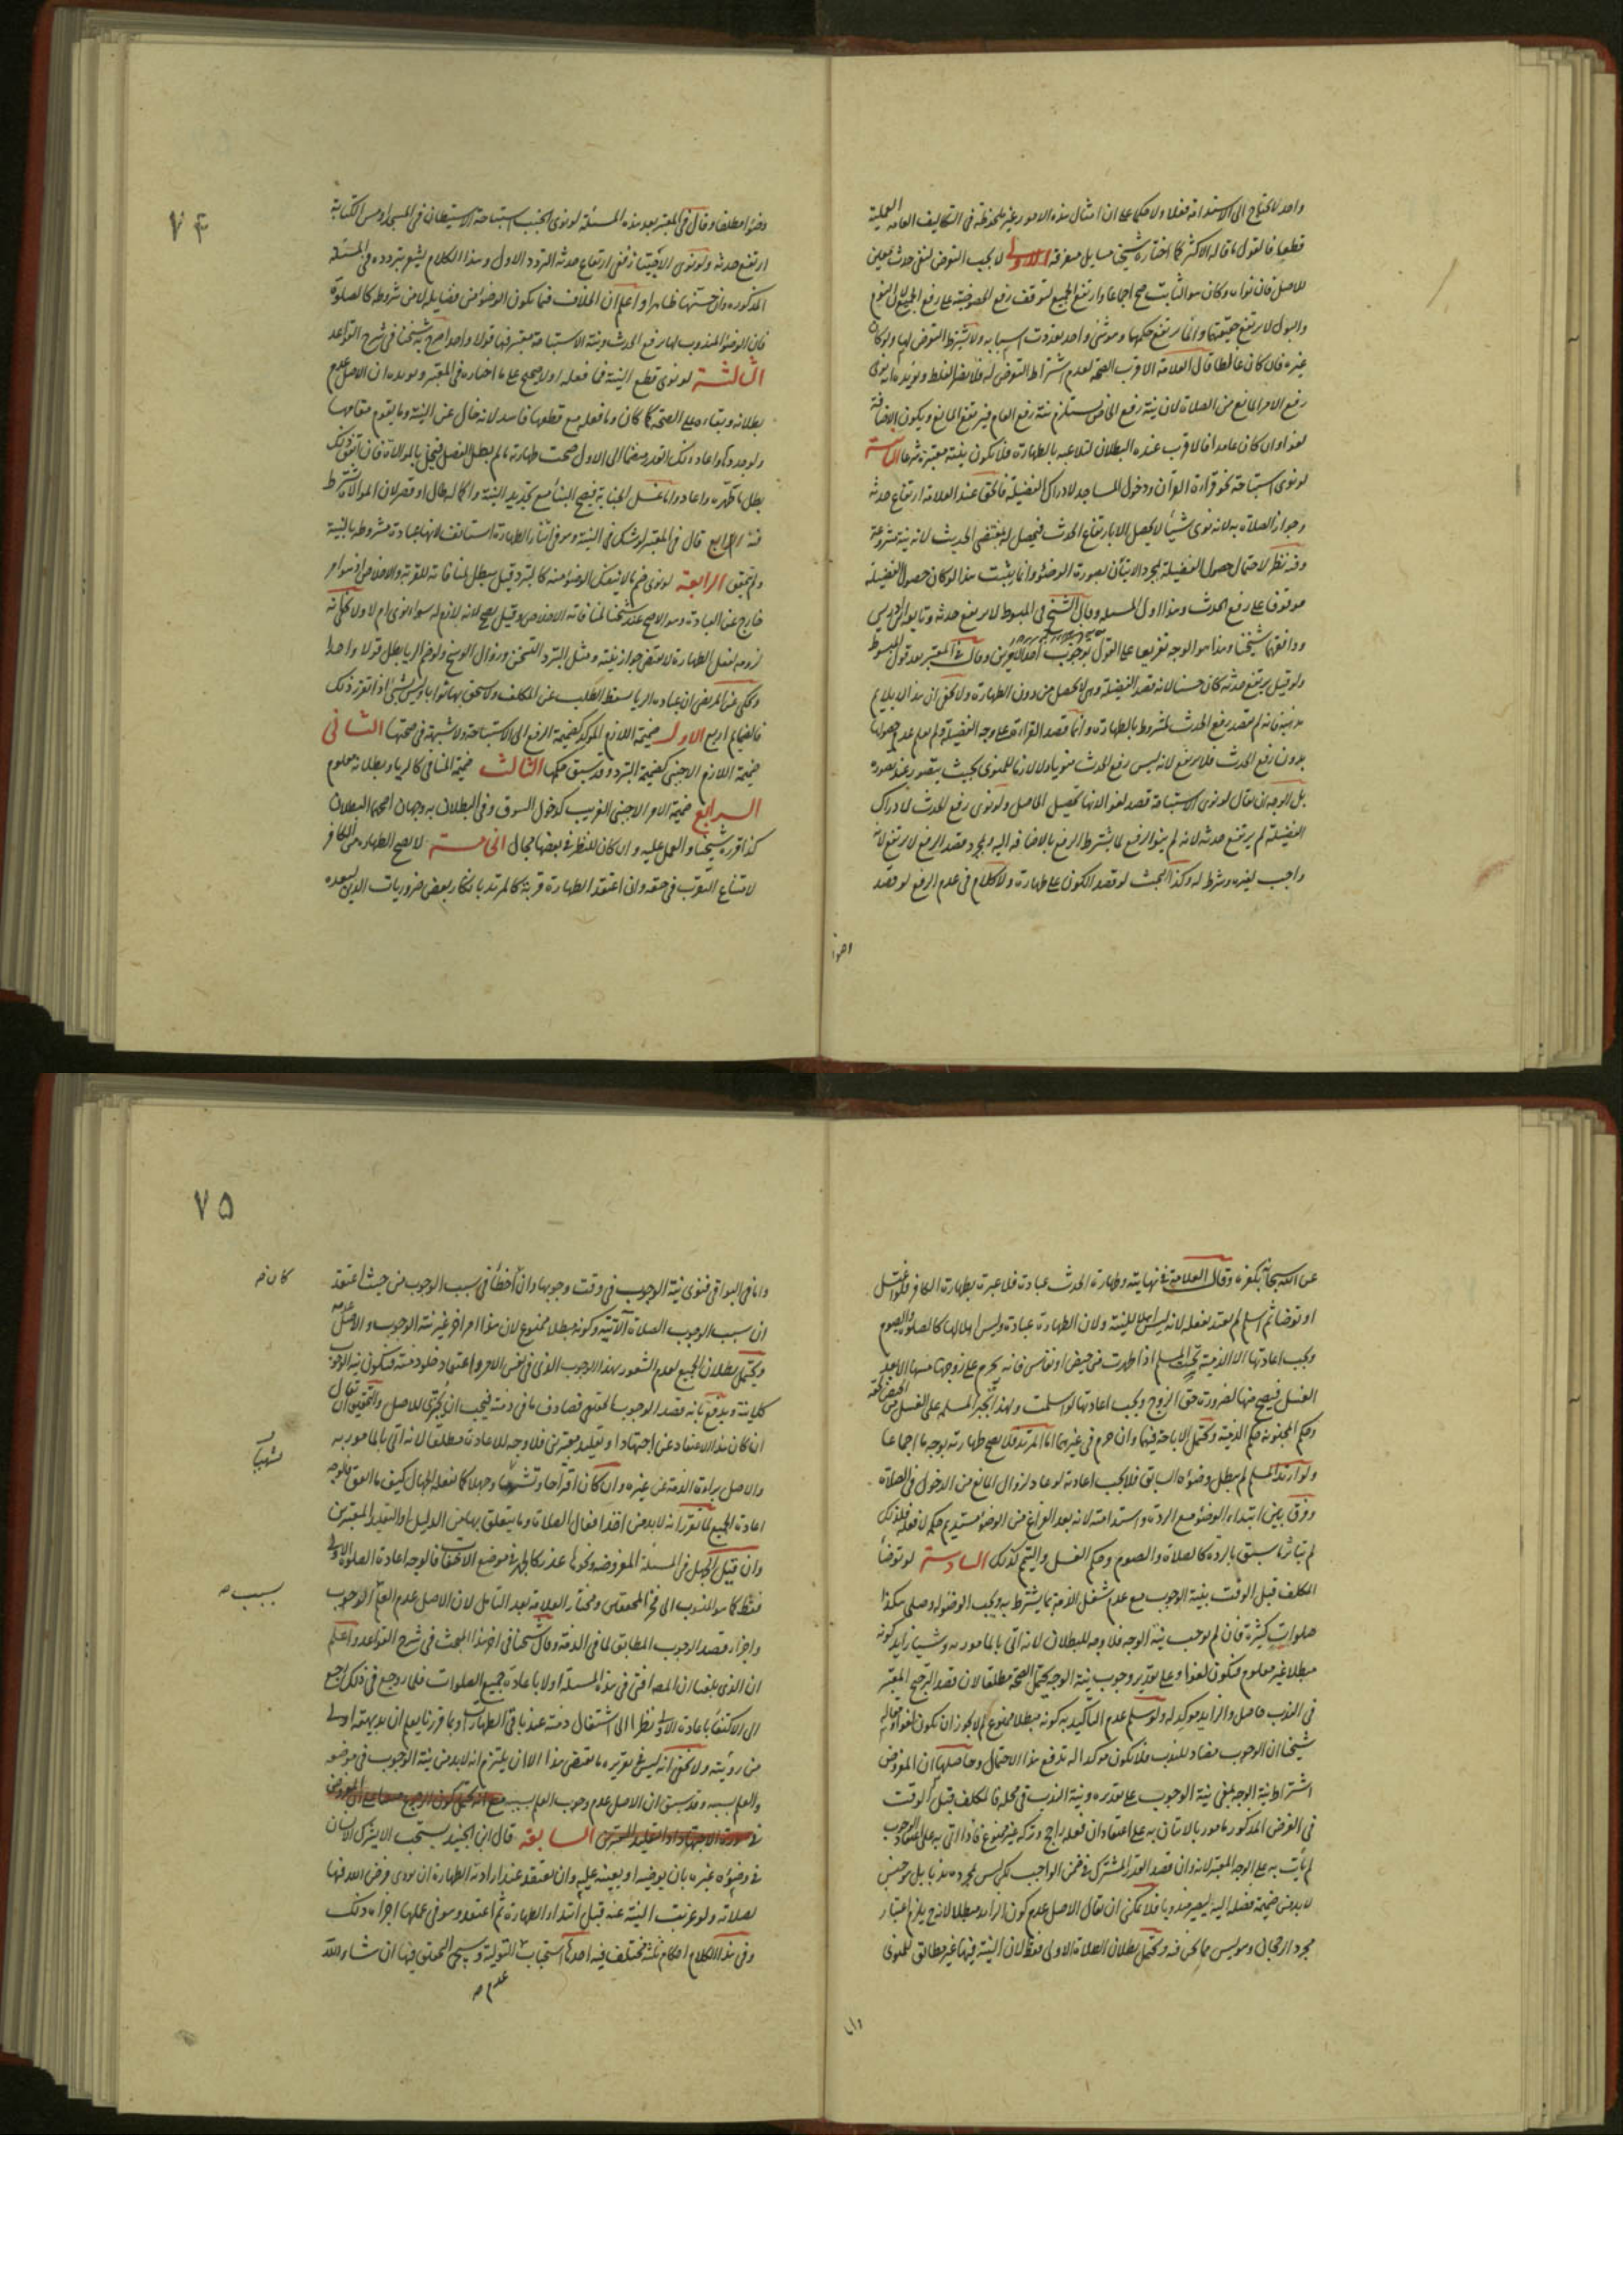 واحد لا يحتاج الى الاستدامة فعلا ولا حكما على ان امثال هذه الامور غير ملحوظة فى التكاليف العامة العملية
قطعا فالقول ما قاله الاكثر كما اختاره شيخنا مسايل متفرقة الاولى لا يجب التعرض لنفى حدث معين
للاصل فان نواه وكان هو الثابت صح اجماعا وارتفع الجميع لتوقف رفع الخصوصية على رفع الجميع لان النوم
والبول لا يرتفع حقيقتها وانما يرتفع حكمها وهو شىء واحد تعددت اسبابه ولا يشترط التعرض لها ولو كان
غيره فان كان غالطا قال العلامة الاقرب الصحة لعدم اشتراط التعرض له فلا يضر الغلط ويؤيده انه نوى
رفع الامر المانع من الصلاة لان نية رفع الخاص يستلزم نية رفع العام فيرتفع المانع ويكون الاضافة
لغوا وان كان عامدا فالاقرب عنده البطلان لتلاعبه بالطهارة فلا يكون بنية معتبرة شرعا الثانية
لو نوى استباحة نحو قراءة القرآن ودخول المساجد لادراك الفضيلة فالحق عند العلامة ارتفاع حدثه
وجواز الصلاة به لانه نوى شيئا لا يحصل الا بارتفاع الحدث فيحصل له بمقتضى الحديث لانه نية مشروعة
وفيه نظر لاحتمال حصول الفضيلة بمجرد الاتيان بصورة الوضوء وانما يثبت هذا لو كان حصول الفضيلة
موقوفا على رفع الحدث وهذا اول المسئلة وقال الشيخ فى المبسوط لا يرتفع حدثه وتابعه ابن ادريس
ووافقهما شيخنا وهذا هو الوجه تفريعا على القول بوجوب احد الامرين وقال فى المعتبر بعد قول المبسوط
ولو قيل يرتفع حدثه كان حسنا لانه قصد الفضيلة وهى لا تحصل من دون الطهارة ولا يخفى ان هذا لا يلايم
مذهبه فانه لم يقصد رفع الحدث المشروط بالطهارة وانما قصد القراءة على وجه الفضيلة ولم يعلم عدم حصولها
بدون رفع الحدث فلا يرتفع لانه ليس رفع الحدث منويا ولا لازما للمنوى بحيث يتصور عند تصوره
بل الوجه ان يقال لو نوى الاستباحة قصد لغوا لانها تحصيل الحاصل ولو نوى رفع الحدث لادراك
الفضيلة لم يرتفع حدثه لانه لم ينو الرفع لما يشترط الرفع بالاضافة اليه وبمجرد قصد الرفع لا يرتفع لانه
واجب لغيره وشرط له وكذا البحث لو قصد الكون على طهارة ولا كلام فى عدم الرفع لو قصد
وضوءا مطلقا وقال فى المعتبر بعد هذه المسئلة لو نوى الجنب استباحة الاستيطان فى المسجد او مس الكتابة
ارتفع حدثه ولو نوى الاجتياز ففى ارتفاع حدثه التردد الاول وهذا الكلام يشعر بتردده فى المسئلة
المذكورة وان حسنها ظاهرا واعلم ان الخلاف فيما يكون الوضوء من فضايله لا من شروطه كالصلوة
فان الوضوء المندوب لها يرفع الحدث ونية الاستباحة معتبر فيها قولا واحدا صرح به شيخنا فى شرح القواعد
الثالثة لو نوى قطع النية فما فعله اولا صحيح على ما اختاره فى المعتبر ويؤيده ان الاصل عدم
بطلانه وبقاءه على الصحة كما كان وما فعله مع قطعها فاسد لانه خال عن النية وما يقوم مقامها
ولو جددها واعاد ذلك القدر مضافا الى الاول صحت طهارته ما لم يطل الفصل فيخل بالموالاة فان اتفق ذلك
بطل ما تطهره واعاد واما غسل الجنابة فيصح البناء مع تجديد النية واكماله طال او قصر لان الموالاة لا تشترط
فيه الرابع قال فى المعتبر لو شك فى النية وهو فى اثناء الطهارة استأنف لانها عبادة مشروطة بالنية
ولم يتحقق الرابعة لو نوى ضم ما لا ينفك الوضوء منه كالتبرد قيل يبطل لمنافاته للقربة والاخلاص اذ هو امر
خارج عن العبادة وهو الاصح عند شيخنا لمنافاته الاخلاص وقيل يصح لانه لازم له سواء نوى ام لا ولا يخفى انه
لزومه لفعل الطهارة لا يقتضى جواز نيته ومثل التبرد التسخن وزوال الوسخ ولو ضم الريا بطل قولا واحدا
وحكى عن المرتضى ان عبادة الريا يسقط الطلب عن المكلف ولا يستحق بها ثوابا وليس بشىء اذا تقرر ذلك
فالضمايم اربع الاول ضميمة اللازم المؤكد كضميمة الرفع الى الاستباحة ولا شبهة فى صحتها الثانى
ضميمة اللازم الاجنبى كضميمة التبرد وقد سبق حكمها الثالث ضميمة المنافى كالريا وبطلانه معلوم
الرابع ضميمة الامر الاجنبى الغريب كدخول السوق وفى البطلان به وجهان اصحهما البطلان
كذا قرره شيخنا والعمل عليه وان كان للنظر فى بعضها مجال الخامسة لا يصح الطهارة من الكافر
لامتناع التقرب فى حقه وان اعتقد الطهارة قربة كالمرتد بانكار بعض ضروريات الدين لبعده
وضوءا
٧٤
عن الله سبحانه بكفره وقال العلامة فى نهايته وطهارة الحدث عبادة فلا عبرة بطهارة الكافر فلو اغتسل
او توضأ ثم اسلم لم يعتد بفعله لانه ليس اهلا للنية ولان الطهارة عبادة وليس اهلا لها كالصلوة والصوم
ويجب اعادتها الا الذمية تحت المسلم اذا طهرت من حيض او نفاس فانه يحرم على زوجها مسها الا بعد
الغسل فيصح منها لضرورة حق الزوج ويجب اعادتها لو اسلمت ولهذا تجبر المسلمة على الغسل من الحيض لحقه
وحكم المجنونة حكم الذمية ويحتمل الاباحة فيهما وان حرم فى غيرهما اما المرتد فلا يصح طهارته بوجه ما اجماعا
ولو ارتد المسلم لم يبطل وضوءه السابق فلا يجب اعادته لو عاد لزوال المانع من الدخول فى الصلاة
وفرق بين ابتداء الوضوء مع الردة واستدامته لانه بعد الفراغ من الوضوء مستديم حكمه لا فعله فلذلك
لم يتأثر ما سبق بالردة كالصلاة والصوم وحكم الغسل والتيمم كذلك السادسة لو توضأ
المكلف قبل الوقت بنية الوجوب مع عدم شغل الذمة بما يشترط به ويجب الوضوء له وصلى هكذا
صلوات كثيرة فان لم نوجب نية الوجه فلا وجه للبطلان لانه اتى بالمأمور به وشيئا زايد كونه
مبطلا غير معلوم فيكون لغوا وعلى تقدير وجوب نية الوجه يحتمل الصحة مطلقا لان قصد الترجيح المعتبر
فى الندب حاصل والزايد مؤكد له ولو سلم عدم التأكيد به كونه مبطلا ممنوع لم لا يجوز ان يكون لغوا وما قاله
شيخنا ان الوجوب مضاد للندب فلا يكون مؤكدا له يدفع هذا الاحتمال وحاصلها ان المفروض
اشتراط نية الوجه بمعنى نية الوجوب على تقديره ونية الندب فى محله فالمكلف قبل الوقت
فى الفرض المذكور مأمور بالاتيان به على اعتقاد ان فعله راجح وتركه غير ممنوع فاذا اتى به على اعتقاد الوجوب
لم يأت به على الوجه المعتبر لانه وان قصد القدر المشترك فى ضمن الواجب لكن ليس بمجرده ندبا بل من حيث
لا بد من ضميمة فصله اليه ليصير مندوبا فلا يمكن ان يقال الاصل عدم كون الزايد مبطلا لانه ح يلزم اعتبار
مجرد الرجحان وهو ليس مما نحن فيه ويحتمل بطلان الصلاة الاولى فقط لان النية فيها غير مطابق للمنوى
واما فى البواقى فنوى نية الوجوب فى وقت وجوبها وان اخطأ فى سبب الوجوب من حيث اعتقد
ان سبب الوجوب الصلاة الآتية وكونه مبطلا ممنوع لان هذا امر اخر غير نية الوجوب والاصل عدمه
ويحتمل بطلان الجميع لعدم الشعور بهذا الوجوب الذى فى نفس الامر واعتقاد خلو ذمته فيكون نية الوجوب
كلا نية ويدفع بانه قصد الوجوب المحتم فصادف ما فى ذمته فيجب ان يجتزى للاصل والتحقيق ان يقال
ان كان هذا الاعتقاد عن اجتهاد او تقليد معتبرين فلا وجه للاعادة مطلقا لانه اتى بالمأمور به
والاصل براءة الذمة عن غيره وان كان اقتراحا وتشهيا وجهلا كما يفعله الجهال كيف ما اتفق فالوجه
اعادة الجميع لما تقرر انه لا بد من اخذ افعال الصلاة وما يتعلق بها من الدليل او التقليد المعتبرين
وان قيل الجهل فى المسئلة المفروضة ونحوها عذر كالجهر فى موضع الاخفات فالوجه اعادة الصلوة الاولى
فقط كما هو المنسوب الى فخر المحققين ومختار العلامة بعد التأمل لان الاصل عدم العلم الوجوب
واجزاء قصد الوجوب المطابق لما فى الذمة وقال شيخنا فى اخر هذا المبحث فى شرح القواعد واعلم
ان الذى بلغنا ان المصنف افتى فى هذه المسئلة اولا باعادة جميع الصلوات فلما روجع فى ذلك رجع
الى الاكتفاء باعادة الاولى نظرا الى اشتغال ذمته عند باقى الطهارات وبما قررنا يعلم ان بديهته اولى
من رويته ولا يخفى انه ليس فى تقريره ما يقتضى هذا الا ان يلتزم انه لا بد من نية الوجوب فى موضعه
والعلم بسببه وقد سبق ان الاصل عدم وجوب العلم بسببه
السابعة قال ابن الجنيد يستحب الا يشرك الانسان
فى وضوءه غيره بان يوضيه او يعينه عليه وان يعتقد عند ارادته الطهارة ان يؤدى فرض الله فيها
لصلاته ولو عزبت النية عنه قبل ابتداء الطهارة ثم اعتقد وهو فى عملها اجزاه ذلك
وفى هذا الكلام احكام ثلثة مختلف فيه احدها استحباب التولية وسيجىء التحقيق فيها ان شاء الله
عدم صح
كان صح
تشهيا
بسبب صح
واما
٧٥